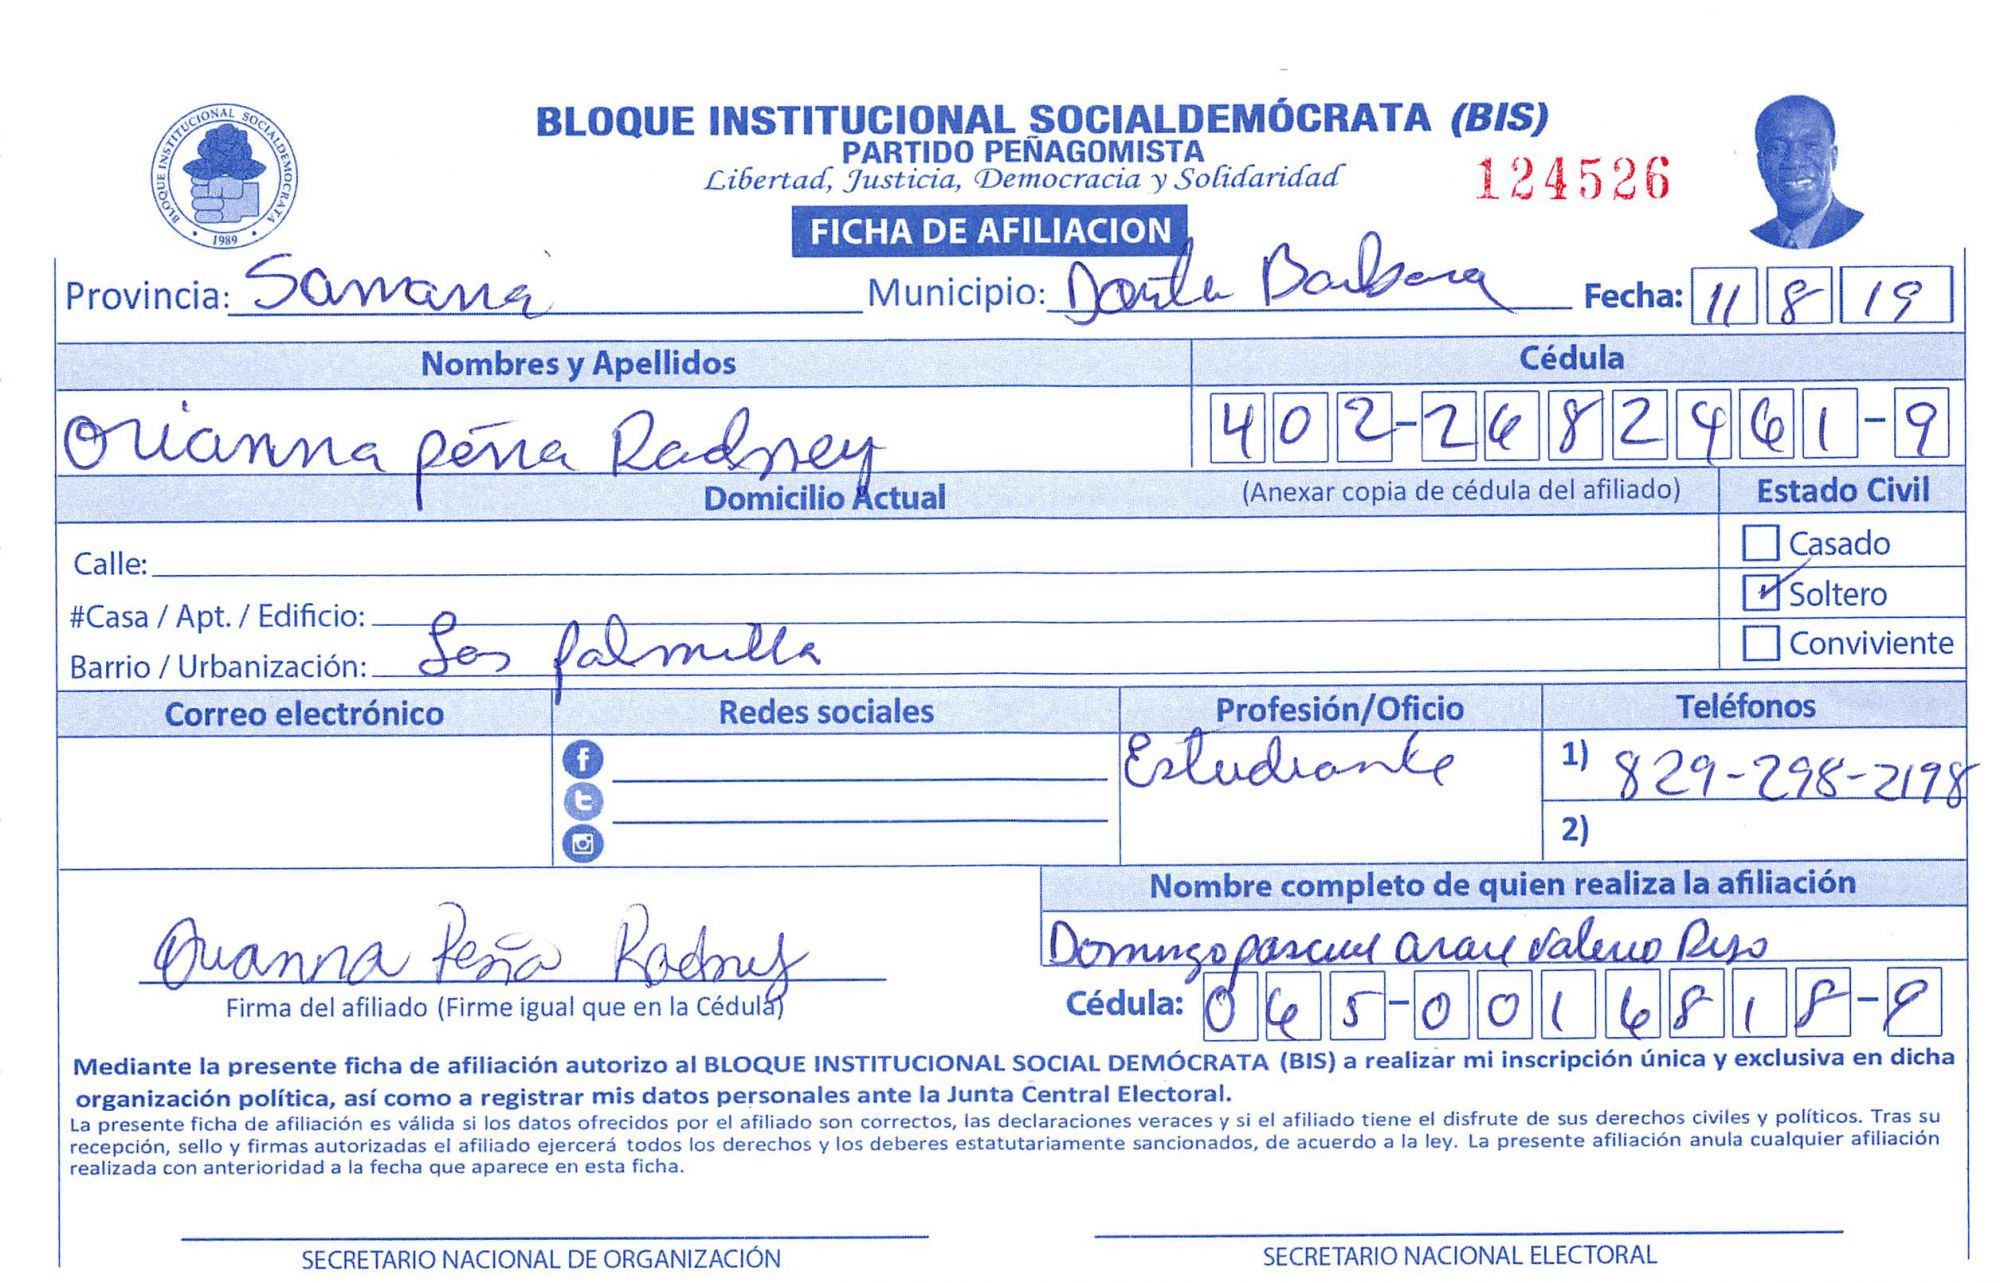 BLOQUE INSTITUCIONAL SOCIALDEMÓCRATA (BIS)
PARTIDO PEÑAGOMISTA
Libertad, Justicia, Democracia y Solidaridad
124526
BLOQUE INSTITUCIONAL SOCIALDEMOCRATA
1989
FICHA DE AFILIACION
Provincia: Samaná Municipio: Santa Barbara Fecha: 11 8 19
Nombres y Apellidos Cédula
Orianna peña Radney 402-2682461-9
Domicilio Actual (Anexar copia de cédula del afiliado) Estado Civil
Casado
Calle:
Soltero
#Casa / Apt. / Edificio:
Conviviente
Barrio / Urbanización: Las palmilla
Correo electrónico Redes sociales Profesión/Oficio Teléfonos
Estudiante 1) 829-298-2198
2)
Nombre completo de quien realiza la afiliación
Orianna Peña Radney Domingo pascual Valerio
Firma del afiliado (Firme igual que en la Cédula) Cédula: 065-0016818-9
Mediante la presente ficha de afiliación autorizo al BLOQUE INSTITUCIONAL SOCIAL DEMÓCRATA (BIS) a realizar mi inscripción única y exclusiva en dicha
organización política, así como a registrar mis datos personales ante la Junta Central Electoral.
La presente ficha de afiliación es válida si los datos ofrecidos por el afiliado son correctos, las declaraciones veraces y si el afiliado tiene el disfrute de sus derechos civiles y políticos. Tras su
recepción, sello y firmas autorizadas el afiliado ejercerá todos los derechos y los deberes estatutariamente sancionados, de acuerdo a la ley. La presente afiliación anula cualquier afiliación
realizada con anterioridad a la fecha que aparece en esta ficha.
SECRETARIO NACIONAL DE ORGANIZACIÓN SECRETARIO NACIONAL ELECTORAL